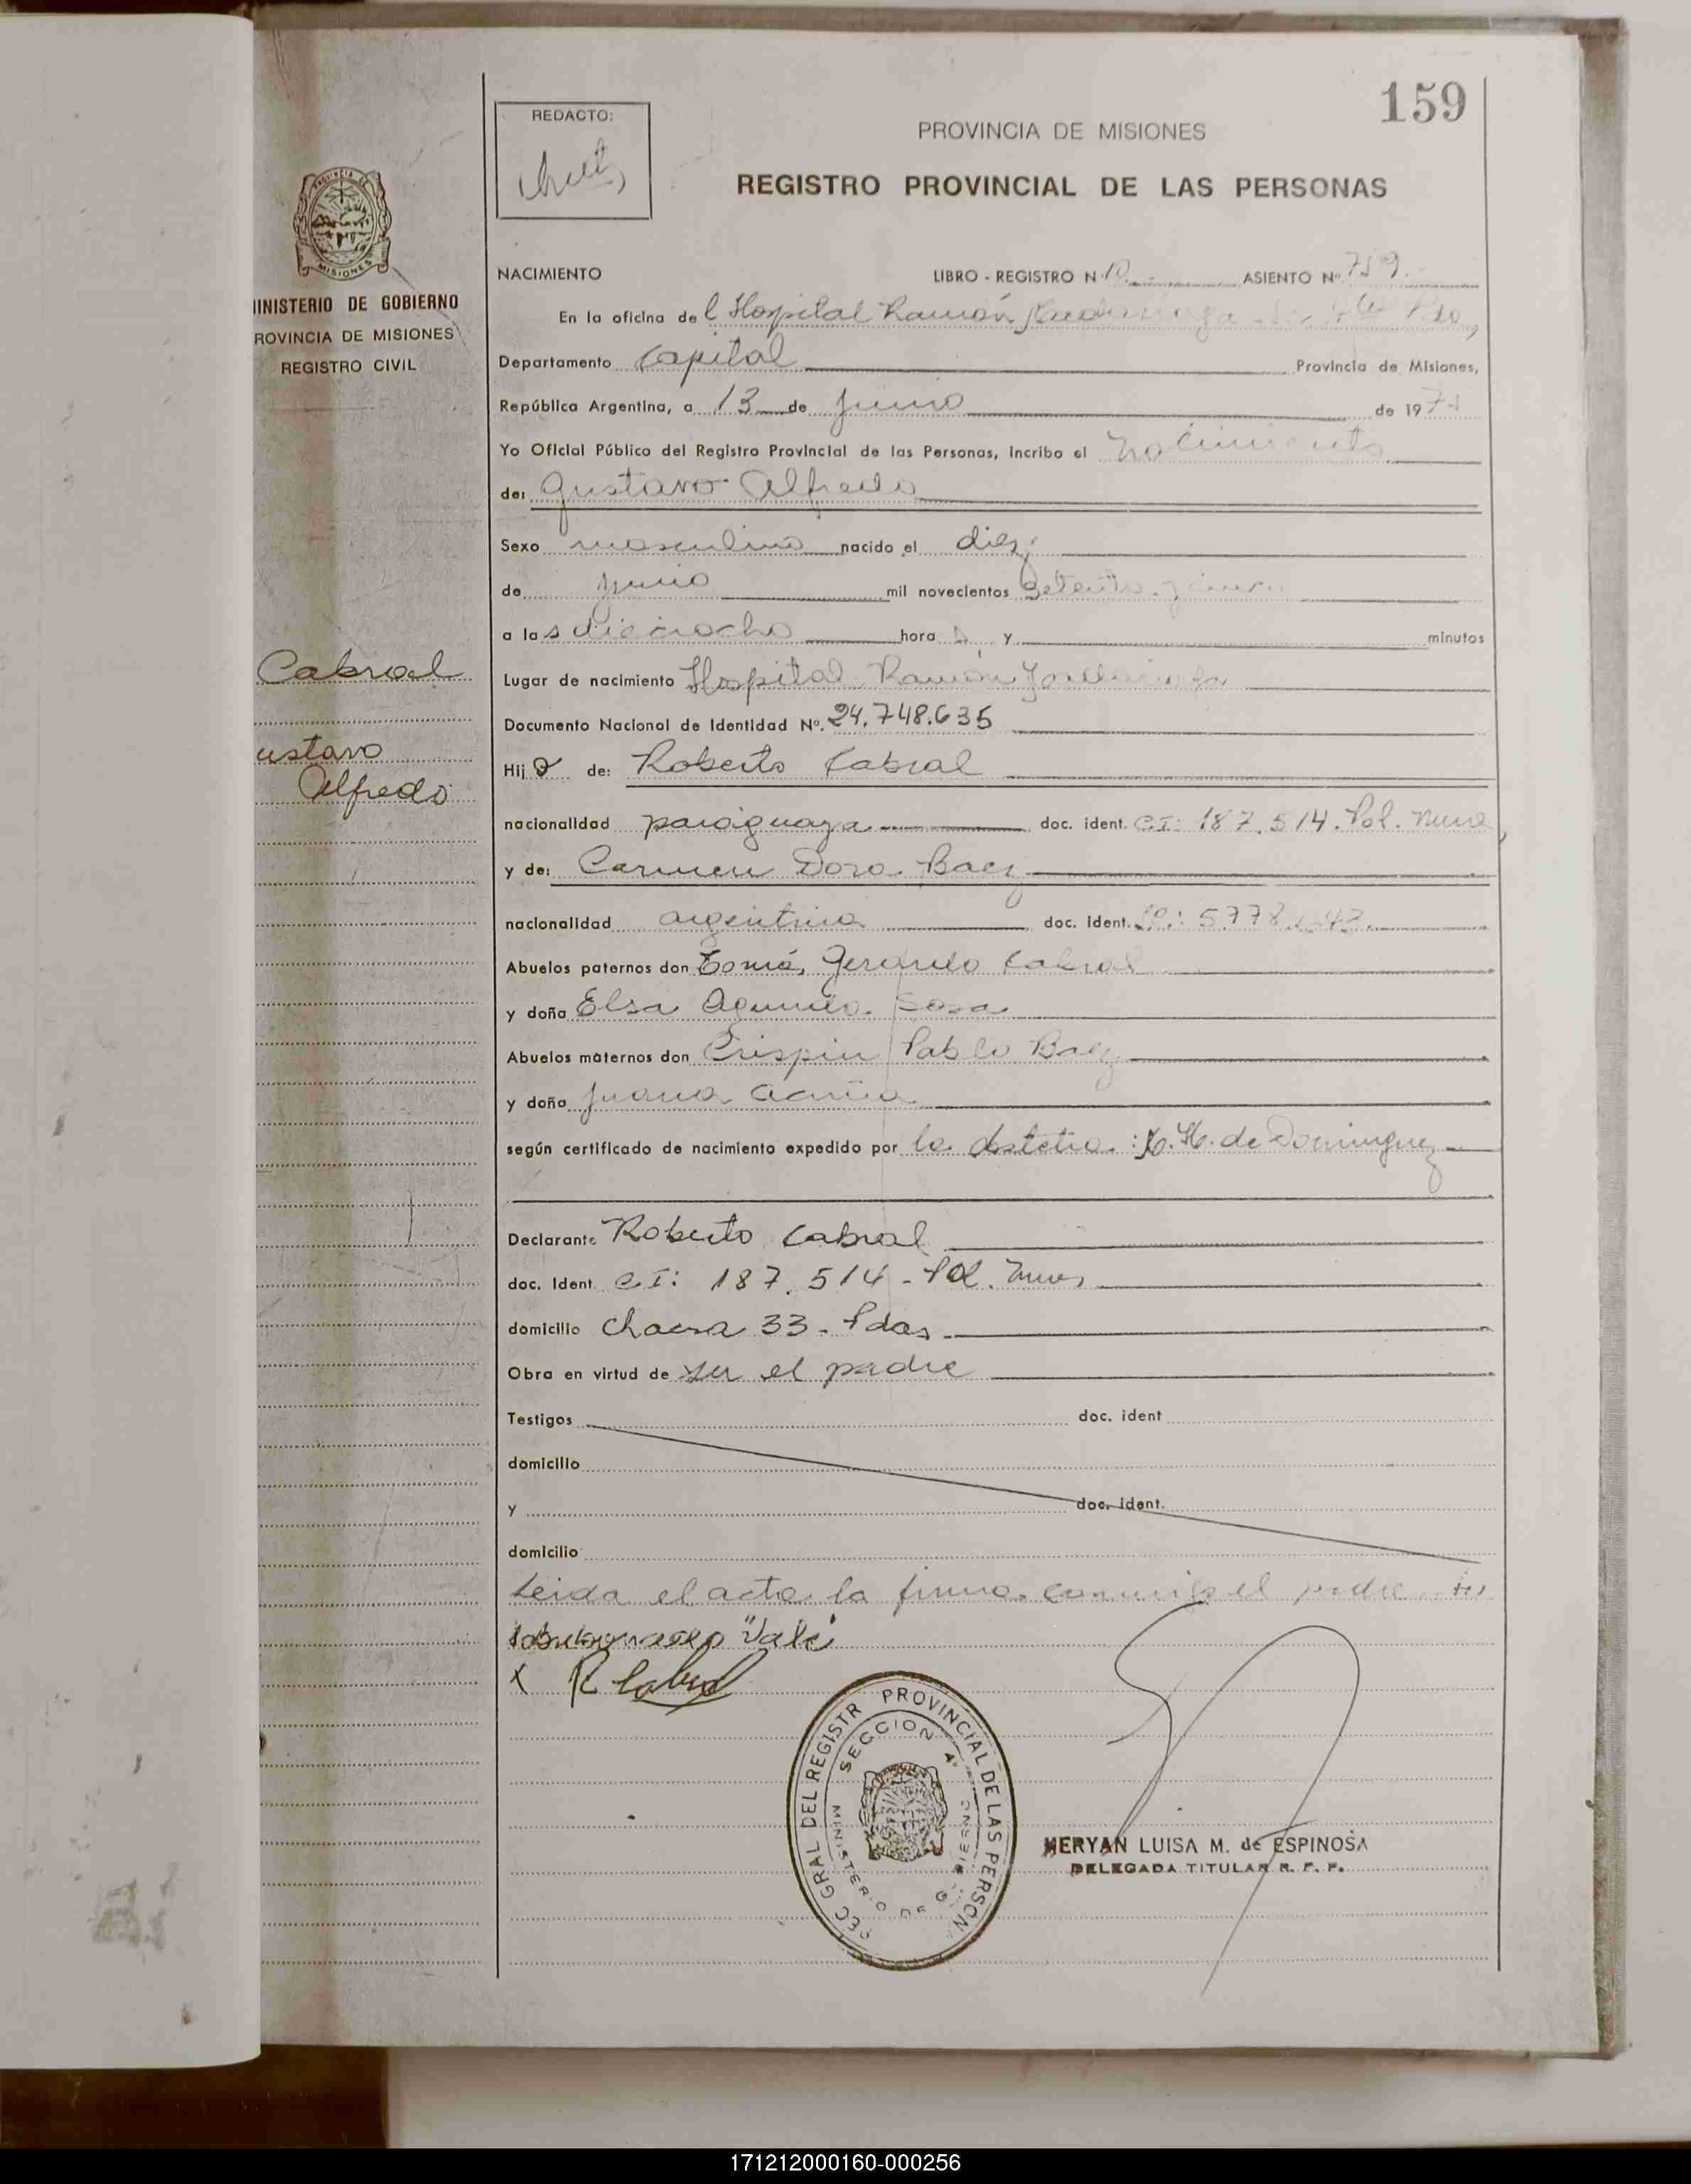 159
REDACTO:
PROVINCIA DE MISIONES
REGISTRO PROVINCIAL DE LAS PERSONAS
PROVINCIA DE
MISIONES
INISTERIO DE GOBIERNO
ROVINCIA DE MISIONES
REGISTRO CIVIL
NACIMIENTO LIBRO - REGISTRO N 10 ASIENTO Nº 759
En la oficina del Hospital Ramón
Departamento Capital Provincia de Misiones,
República Argentina, a 13 de junio de 197
Yo Oficial Público del Registro Provincial de las Personas, inscribo el nacimiento
de: Gustavo Alfredo
Sexo masculino nacido el diez
de junio mil novecientos setenta y
a las dieciocho horas y minutos
Cabral
Lugar de nacimiento Hospital Ramón
Documento Nacional de Identidad Nº. 24.748.635
ustavo
Alfredo
Hijo de: Roberto Cabral
nacionalidad paraguaya doc. ident. C.I: 187.514. Pol. Mnes
y de: Carmen Dora Baez
nacionalidad argentina doc. ident. 5778
Abuelos paternos don Tomás Gerardo Cabral
y doña Elsa Sosa
Abuelos maternos don Crispin Pablo Baez
y doña Juana Acuña
según certificado de nacimiento expedido por la obstetra: H. de Dominguez
Declarante Roberto Cabral
doc. Ident. C.I: 187.514 - Pol. Mnes
domicilio Chacra 33 - Pdas
Obra en virtud de ser el padre
Testigos doc. ident
domicilio
y doc. ident.
domicilio
Leida el acta la firma conmigo el padre
"Vale"
x R Cabral
SEC GRAL DEL REGISTR PROVINCIAL DE LAS PERSON
SECCION 4ª
MINISTERIO DE
MERYAN LUISA M. de ESPINOSA
DELEGADA TITULAR R. P. P.
171212000160-000256